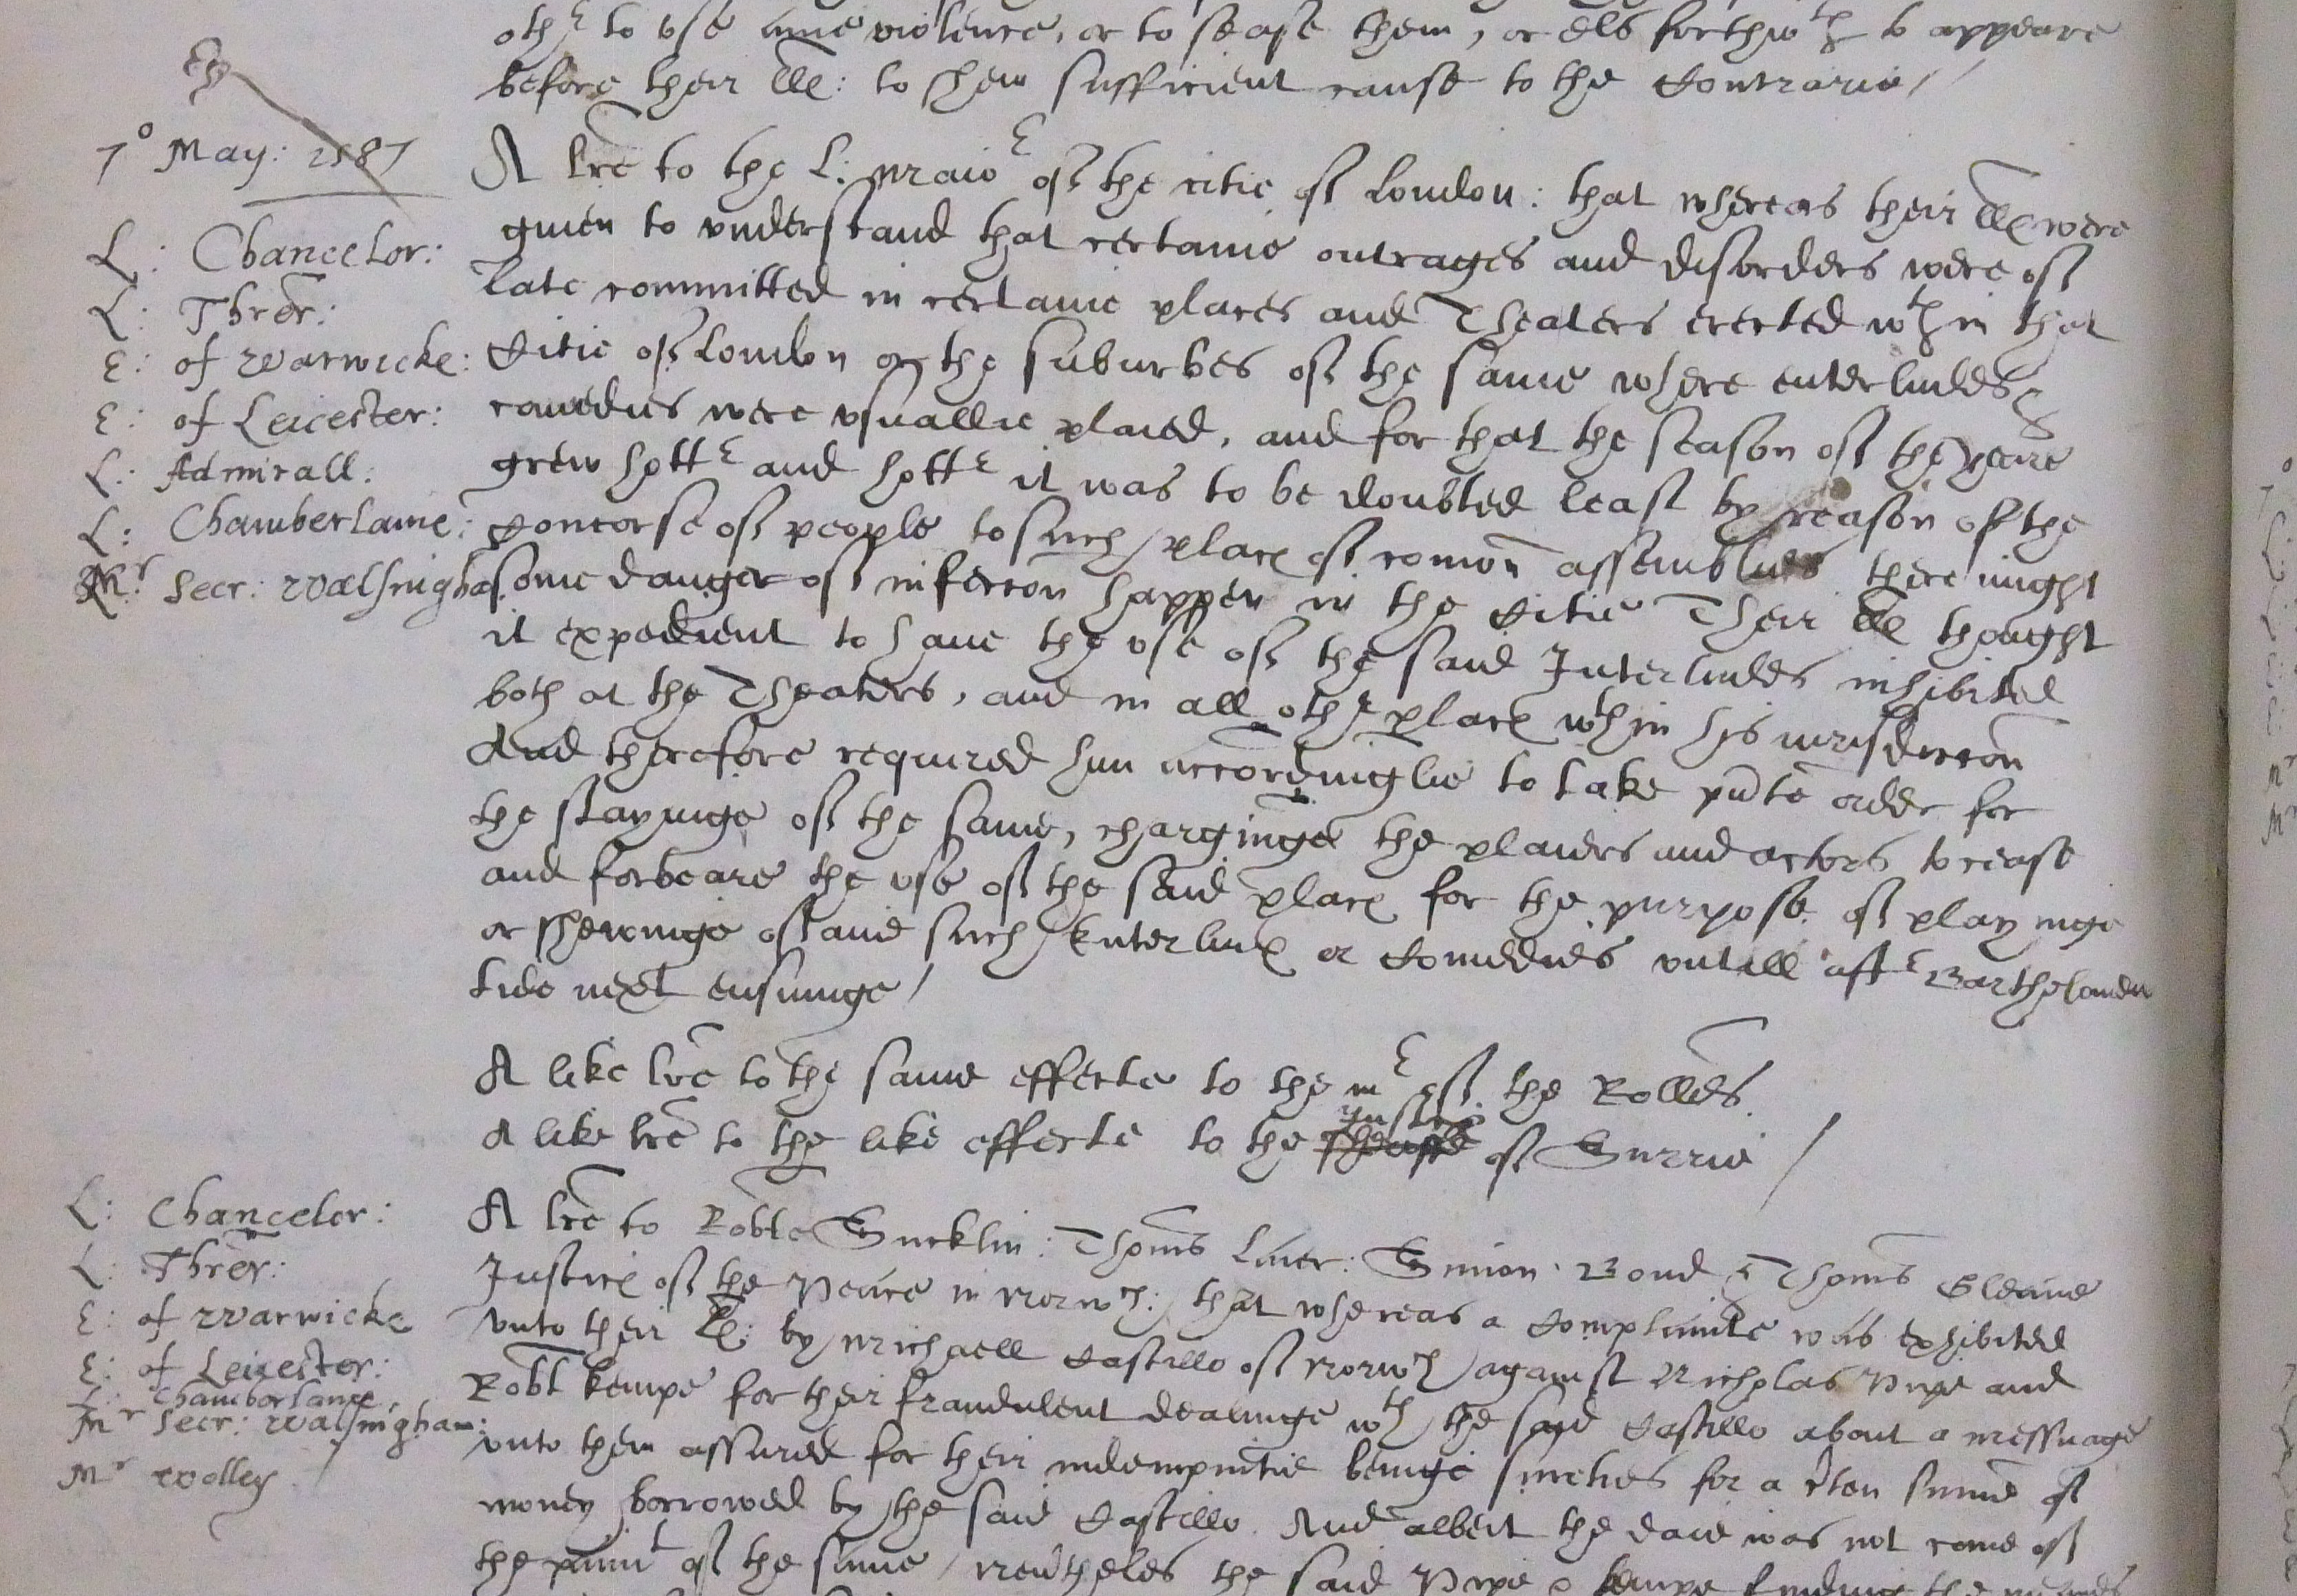 othr to vse anie violence, or to sease them, or els forthwth to appeare
before their LL: to shew sufficient cause to the Contrarie /
7o May: 1587
L: Chancelor:
L: Threr:
E: of Warwicke:
E: of Leicester:
L: Admirall:
L: Chamberlaine:
Mr Secr: Walsingha
A lre to the L: Maior of the citie of London: that whereas their LL were
giuen to vnderstand that certaine outrages and disorders were of
late committed in certaine places and Theaters erected wthin that
Citie of London or the suburbes of the same where enterludes &
comedies were vsuallie plaied, and for that the season of the yeare
grew hottr and hottr it was to be doubted least by reason of the
Concorse of people to such places of comon assemblies there might
some danger of infeccon happen in the Citie Their LL thought
it expedient to haue the vse of the said Interludes inhibited
both at the Theaters, and in all othr places wthin his iurisdiccon
And therefore required him accordinglie to take pnte order for
the stayinge of the same, charginge the plaiers and actors to cease
and forbeare the vse of the said places for the purpose of playinge
or shewinge of anie such Enterludes or Comedies vntill aftr Barthelomew
tide next ensuinge /
A like lre to the same effecte to the mr of the Rolles.
A like lre to the like effecte to the Justices of Surrie /
L: Chancelor:
L: Threr:
E: of Warwicke
E: of Leicester:
L: Chamberlaine
Mr Secr: Walsingham:
Mr Wolley
A lre to Robte Sucklin: Thoms Layer: Simon Bowd & Thoms Gleane
Justices of the Peace in Norwch: that whereas a Complainte was exhibited
vnto their LL: by Michaell Castillo of Norwch against Nicholas Pipe and
Robt Kempe for their fraudulent dealinge wth the said Castillo about a messuage
vnto them assured for their indempnitie beinge sureties for a cten summe of
money borrowed by the said Castillo. And albeit the daie was not come of
the paimt of the same / neutheles the said Pipe & Kempe findinge the meanes